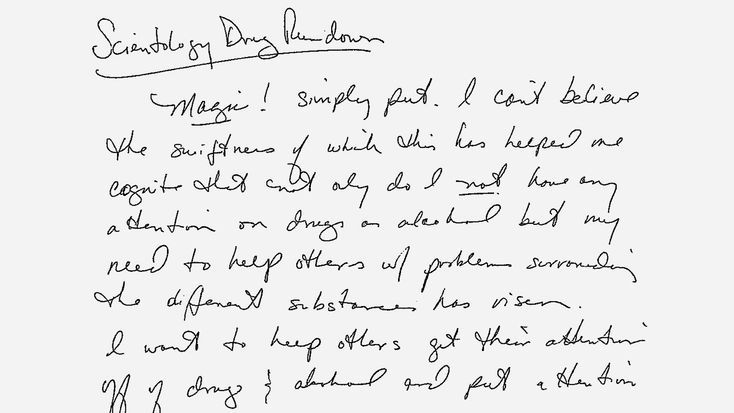 Scientology Drug Rundown
Magic! simply put. I can't believe
the swiftness of which this has helped me
cognite that not only do I not have any
attention on drugs or alcohol but my
need to help others w/ problems surrounding
the different substances has risen.
I want to help others get their attention
off of drugs & alcohol and put attention